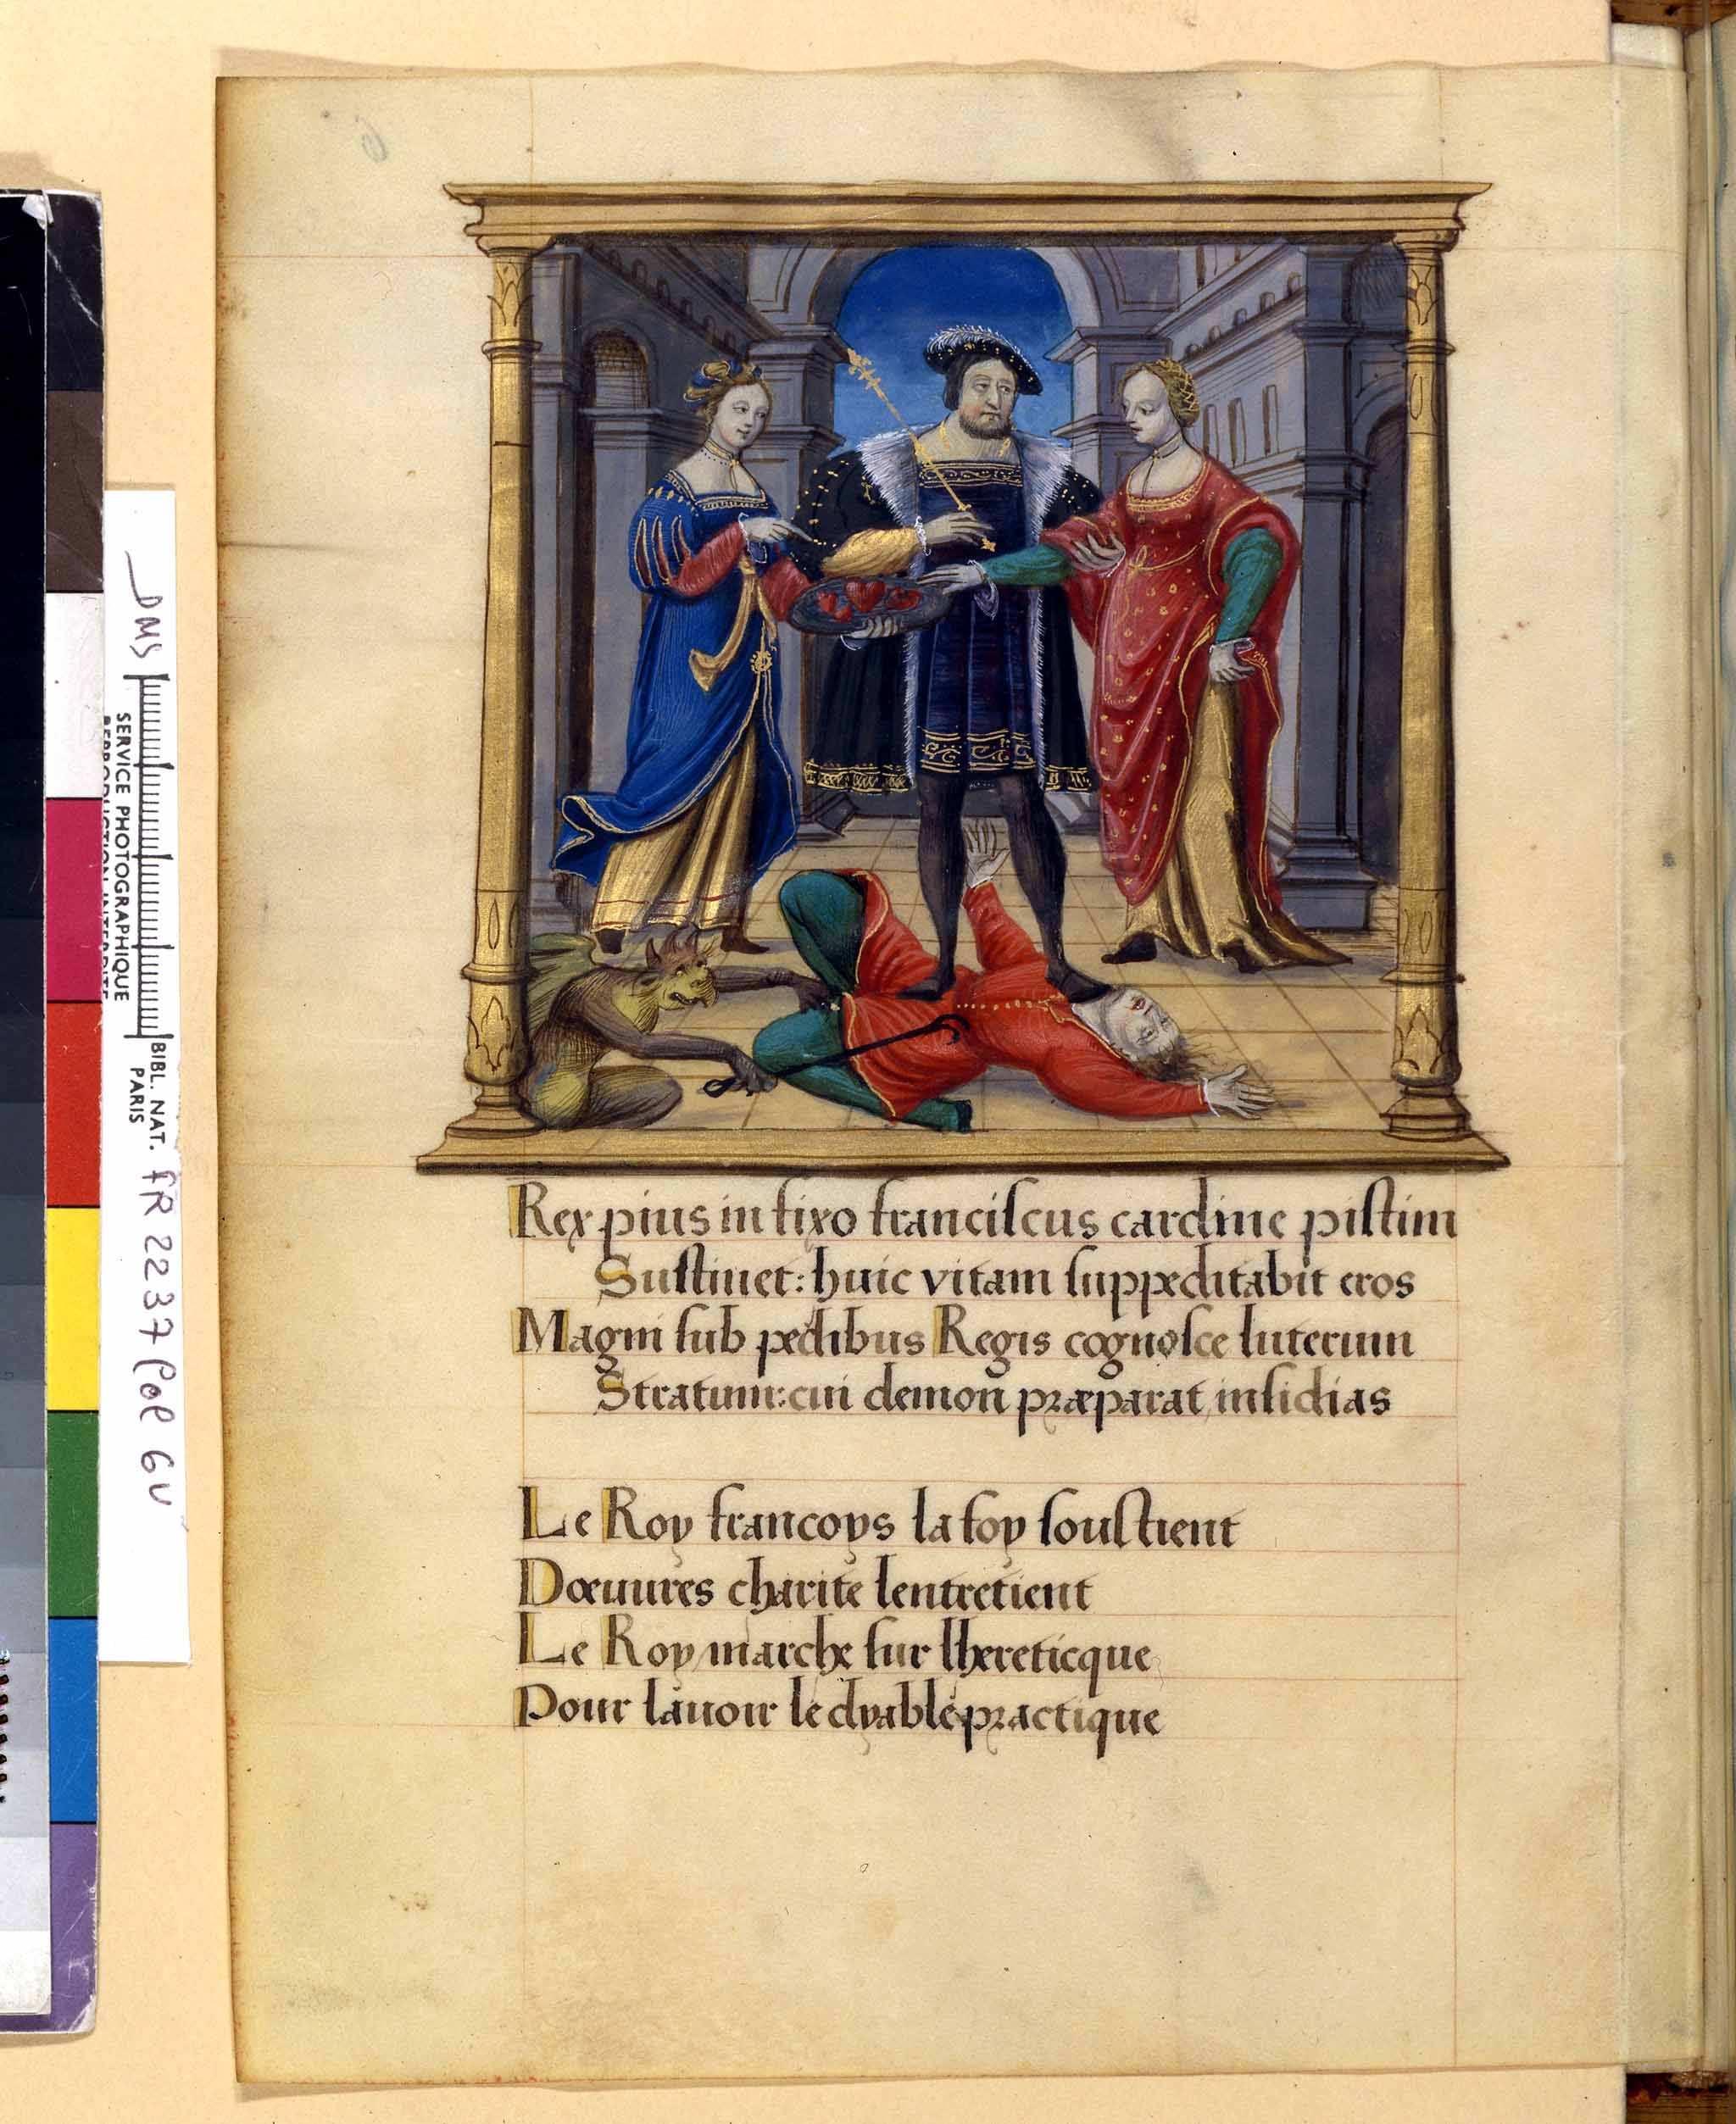 Rex pius in fixo franciſcus cardine piſtim
Suſtinet: huic vitam ſuppeditabit eros
Magni ſub pedibus Regis cognoſce luterum
Stratum: cui demon præparat inſidias
Le Roy francoys la foy ſouſtient
Dœuures charite lentretient
Le Roy marche ſur lhereticque
Pour lauoir le dyable practique
6
DMS
SERVICE PHOTOGRAPHIQUE
REPRODUCTION INTERDITE
BIBL. NAT.
PARIS
fR 2237 fol 6v